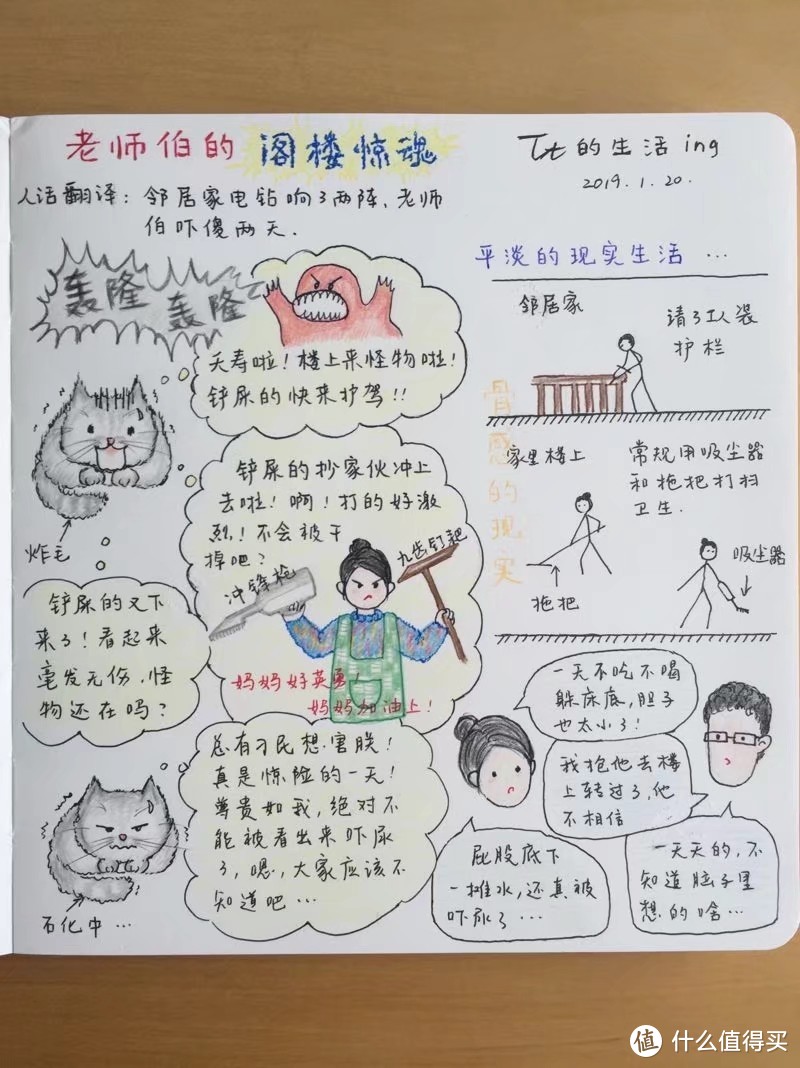 老师伯的 阁楼惊魂
人话翻译：邻居家电钻响了两阵，老师
伯吓傻两天.
轰隆
轰隆
夭寿啦！楼上来怪物啦！
铲屎的快来护驾！！
炸毛
铲屎的抄家伙冲上
去啦！啊！打的好激
烈！不会被干
掉吧？
冲锋枪
九齿钉耙
妈妈好英勇！
妈妈加油上！
铲屎的又下
来了！看起来
毫发无伤，怪
物还在吗？
总有刁民想害朕！
真是惊险的一天！
尊贵如我，绝对不
能被看出来吓尿
了，嗯，大家应该不
知道吧…
石化中…
Tt的生活ing
2019.1.20.
平淡的现实生活…
骨感的现实
邻居家
请了工人装
护栏
家里楼上
常规用吸尘器
和拖把打扫
卫生.
拖把
吸尘器
一天不吃不喝
躲床底，胆子
也太小了！
我抱他去楼
上转过了，他
不相信
屁股底下
一摊水，还真被
吓尿了…
一天天的，不
知道脑子里
想的啥…
值 什么值得买